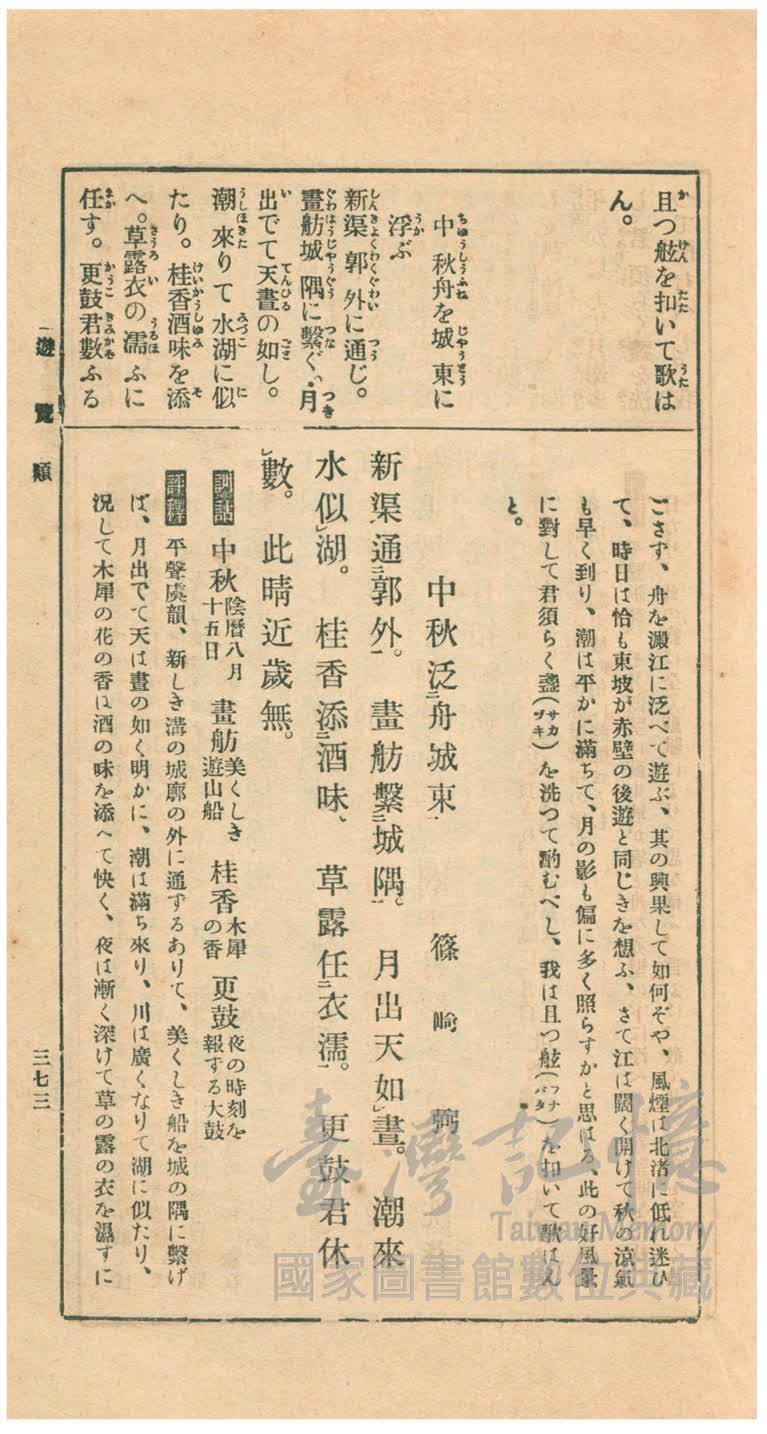 且つ舷を扣いて歌は
ん。
中秋舟を城東に
浮ぶ
新渠郭外に通じ。
畫舫城隅に繫ぐ、月
出でて天晝の如し。
潮來りて水湖に似
たり。桂香酒味を添
へ。草露衣の濡ふに
任す。更鼓君數ふる
ごさず、舟を澱江に泛べて遊ぶ、其の興果して如何ぞや、風煙は北渚に低れ迷ひ
て、時日は恰も東坡が赤壁の後遊と同じきを想ふ、さて江は闊く開けて秋の涼氣
も早く到り、潮は平かに滿ちて、月の影も偏に多く照らすかと思はる、此の好風景
に對して君須らく盞(サカヅキ)を洗つて酌むべし、我は且つ舷(フナバタ)を扣いて歌はん
と。
中秋泛二舟城東一
篠崎弼
新渠通二郭外一。畫舫繫二城隅一。月出天如レ晝。潮來
水似レ湖。桂香添二酒味一、草露任二衣濡一。更鼓君休
レ數。此晴近歲無。
訓詁 中秋 陰曆八月十五日 畫舫 美くしき遊山船 桂香 木犀の香 更鼓 夜の時刻を報ずる大鼓
評釋 平聲虞韻、新しき溝の城廓の外に通ずるありて、美くしき船を城の隅に繫げ
ば、月出でて天は晝の如く明かに、潮は滿ち來り、川は廣くなりて湖に似たり、
況して木犀の花の香は酒の味を添へて快く、夜は漸く深けて草の露の衣を濕すに
遊覽類
三七三
臺灣記憶
Taiwan Memory
國家圖書館數位典藏